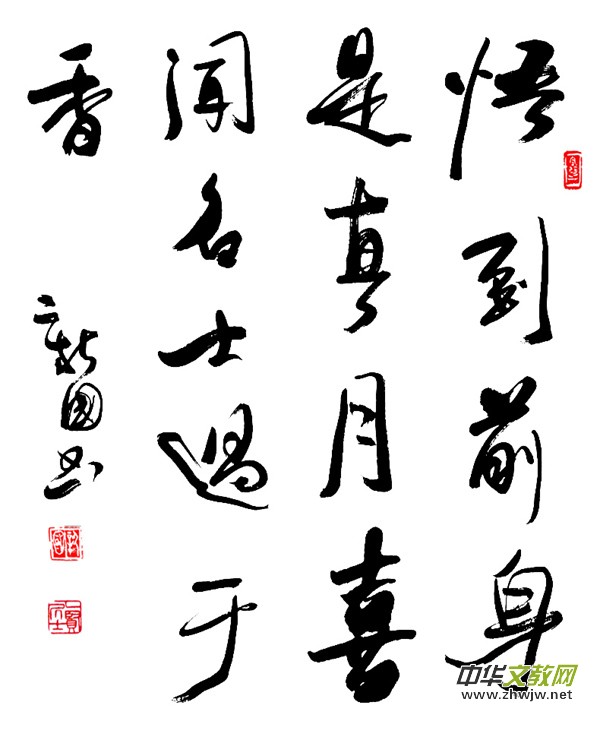 悟到前身
是真月喜
闻名士過于
香
新國书
中华文教网
www.zhwjw.net